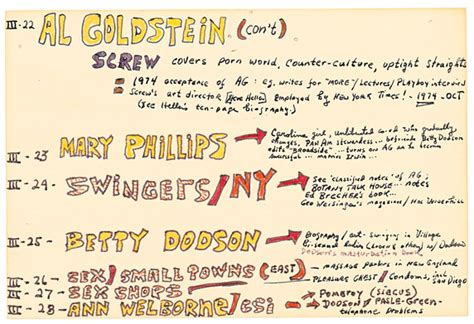 III-22 AL GOLDSTEIN (con't)
SCREW covers porn world, counter-culture, uptight straights
1974 acceptance of AG: eg. writes for "MORE"/Lectures/Playboy interview
Screw's art director (Steve Heller) employed by New York Times! - 1974-OCT
(See Heller's ten-page biography.)
III-23 MARY PHILLIPS → Carolina girl, uninhibited co-ed who gradually
changes, PAN Am stewardess... befriends Betty Dodson
edits "Broadside" ... turns on AG on to become
successful... marries Irwin...
III-24- SWINGERS/NY → See "classified notes" of AG;
BOTANY TALK HOUSE... notes
Ed BRECHER'S book...
Geo Weisinger's magazine /
III-25- BETTY DODSON → Biography/art-swinging in Village
Bi-sexual ladies (some & others) w/ Dodson's
Dodson's masturbation book
III-26- SEX/SMALL TOWNS (EAST) - MASSAGE Parlors in NEW England
III-27- SEX SHOPS → PLEASURE CHEST/Condoms, incl. San Diego
III-28- ANN WELBORNE/esi → POMEROY (SIECUS)
→ DODSON/FASLE-Green-
telephone problems